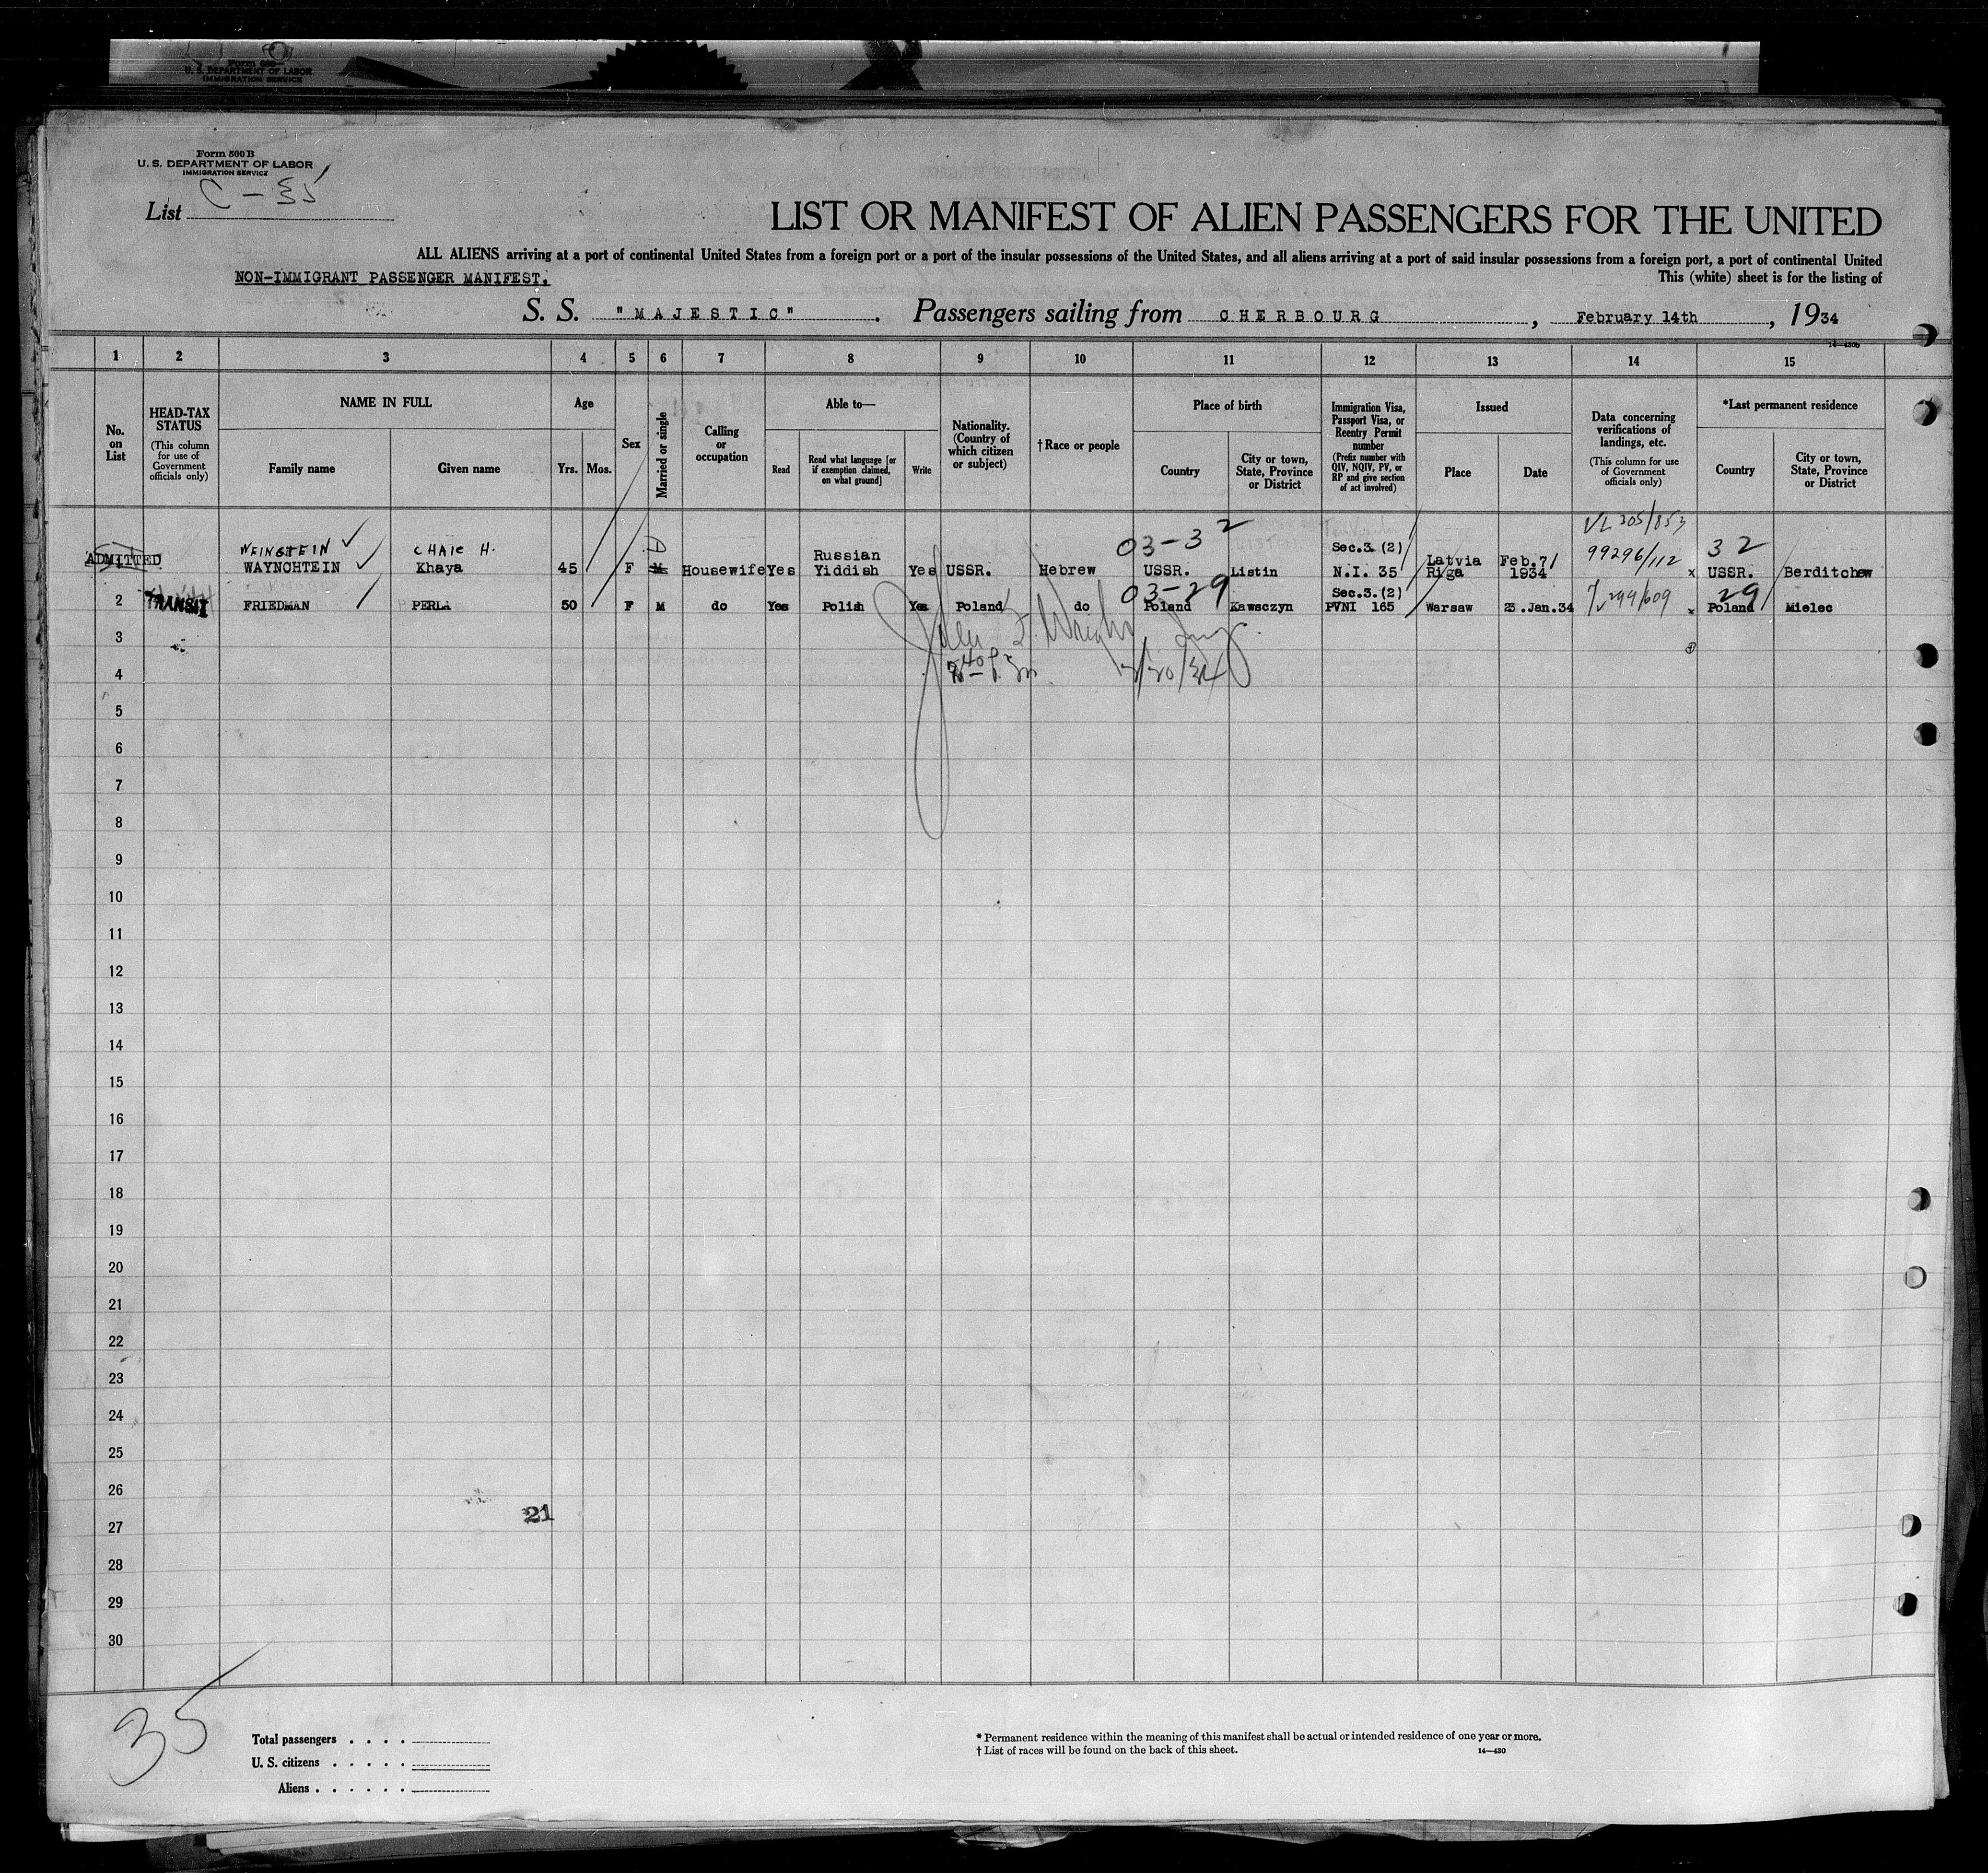 Form 500 B
U. S. DEPARTMENT OF LABOR
IMMIGRATION SERVICE
Form 500 B
U. S. DEPARTMENT OF LABOR
IMMIGRATION SERVICE
List C-35
LIST OR MANIFEST OF ALIEN PASSENGERS FOR THE UNITED
ALL ALIENS arriving at a port of continental United States from a foreign port or a port of the insular possessions of the United States, and all aliens arriving at a port of said insular possessions from a foreign port, a port of continental United
NON-IMMIGRANT PASSENGER MANIFEST. This (white) sheet is for the listing of
S. S. "MAJESTIC". Passengers sailing from CHERBOURG, February 14th, 1934
14—430b
1 2 3 4 5 6 7 8 9 10 11 12 13 14 15
No. on List
HEAD-TAX STATUS
(This column for use of Government officials only)
NAME IN FULL
Family name
Given name
Age
Yrs.
Mos.
Sex
Married or single
Calling or occupation
Able to—
Read
Read what language [or if exemption claimed, on what ground]
Write
Nationality. (Country of which citizen or subject)
† Race or people
Place of birth
Country
City or town, State, Province or District
Immigration Visa, Passport Visa, or Reentry Permit number
(Prefix number with QIV, NQIV, PV, or RP and give section of act involved)
Issued
Place
Date
Data concerning verifications of landings, etc.
(This column for use of Government officials only)
*Last permanent residence
Country
City or town, State, Province or District
VL 205/853
WEINSTEIN CHAIE H. D Russian 03-32 Sec.3.(2) Latvia Feb.7/ 99296/112 32
ADMITTED 1 WAYNCHTEIN Khaya 45 F M Housewife Yes Yiddish Yes USSR. Hebrew USSR. Listin N.I. 35 Riga 1934 x USSR. Berditchew
03-29 Sec.3.(2) 299/609 29
2 TRANSIT FRIEDMAN PERLA 50 F M do Yes Polish Yes Poland do Poland Kawsczyn PVNI 165 Warsaw 23.Jan.34 x Poland Mielec
3
4
5
6
7
8
9
10
11
12
13
14
15
16
17
18
19
20
21
22
23
24
25
26
21
27
28
29
30
35
Total passengers . . . .
U. S. citizens . . . . .
Aliens . . . . . .
* Permanent residence within the meaning of this manifest shall be actual or intended residence of one year or more.
† List of races will be found on the back of this sheet. 14—430